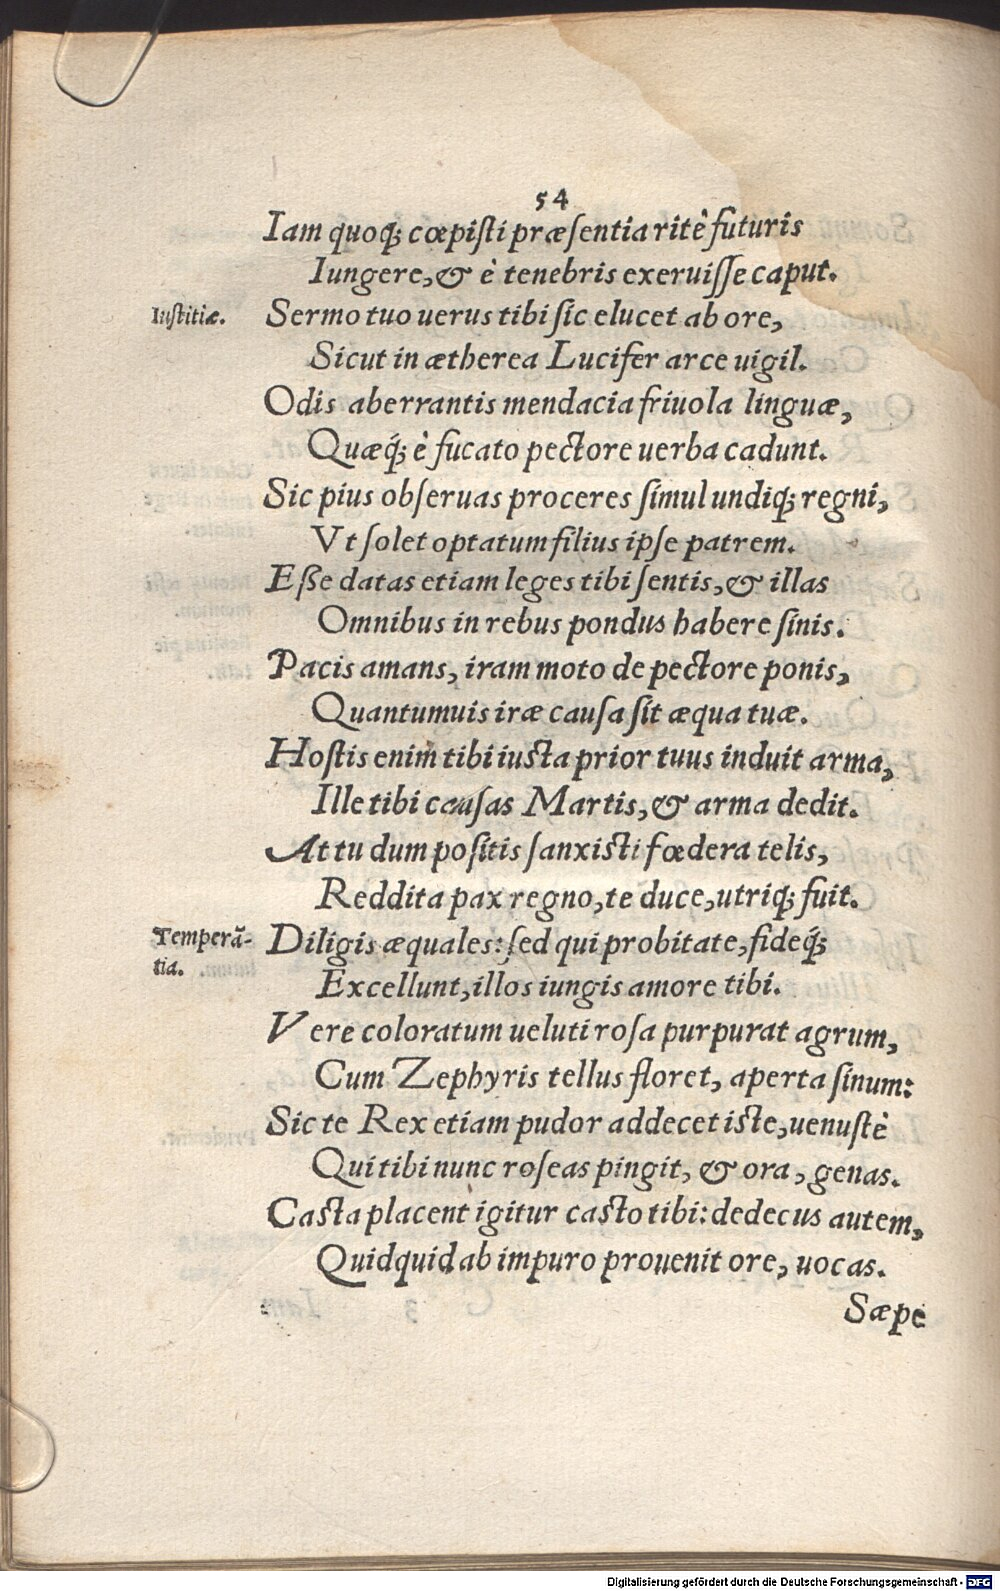 54
Iam quoq; cœpisti præsentia ritè futuris
Iungere, & è tenebris exeruisse caput.
Iustitiæ.
Sermo tuo uerus tibi sic elucet ab ore,
Sicut in ætherea Lucifer arce uigil.
Odis aberrantis mendacia friuola linguæ,
Quæq́; è fucato pectore uerba cadunt.
Sic pius obseruas proceres simul undiq; regni,
Vt solet optatum filius ipse patrem.
Eße datas etiam leges tibi sentis, & illas
Omnibus in rebus pondus habere sinis.
Pacis amans, iram moto de pectore ponis,
Quantumuis iræ causa sit æqua tuæ.
Hostis enim tibi iusta prior tuus induit arma,
Ille tibi causas Martis, & arma dedit.
At tu dum positis sanxisti fœdera telis,
Reddita pax regno, te duce, utriq; fuit.
Temperā-
tia.
Diligis æquales: sed qui probitate, fideq́;
Excellunt, illos iungis amore tibi.
Vere coloratum ueluti rosa purpurat agrum,
Cum Zephyris tellus floret, aperta sinum:
Sic te Rex etiam pudor addecet iste, uenustè
Qui tibi nunc roseas pingit, & ora, genas.
Casta placent igitur casto tibi: dedecus autem,
Quidquid ab impuro prouenit ore, uocas.
Sæpe
Digitalisierung gefördert durch die Deutsche Forschungsgemeinschaft - DFG